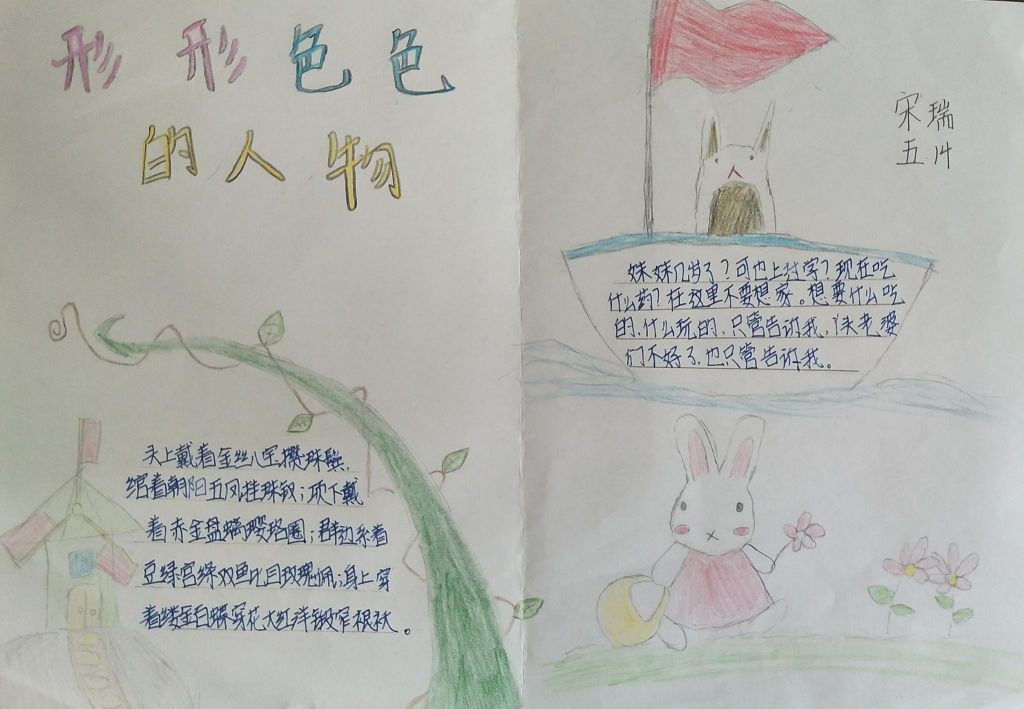 形形色色
的人物
宋瑞
五.14
妹妹几岁了?可也上过学?现在吃
什么药?在这里不要想家。想要什么吃
的、什么玩的,只管告诉我,丫头老婆
们不好了,也只管告诉我。
头上戴着金丝八宝攒珠髻,
绾着朝阳五凤挂珠钗;项下戴
着赤金盘螭璎珞圈;裙边系着
豆绿宫绦双鱼比目玫瑰佩;身上穿
着缕金百蝶穿花大红洋缎窄裉袄。